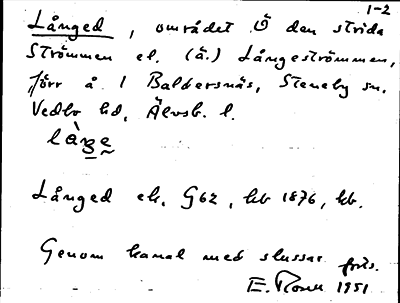 1-2
Långed, området Ö den strida
Strömmen el. (ä.) Långeströmmen,
förr å 1 Baldersnäs, Steneby sn,
Vedbo hd, Älvsb. l.
låŋe
Långed ek. G62, hb 1876, kb.
Genom kanal med slussar forts.
E. 1951